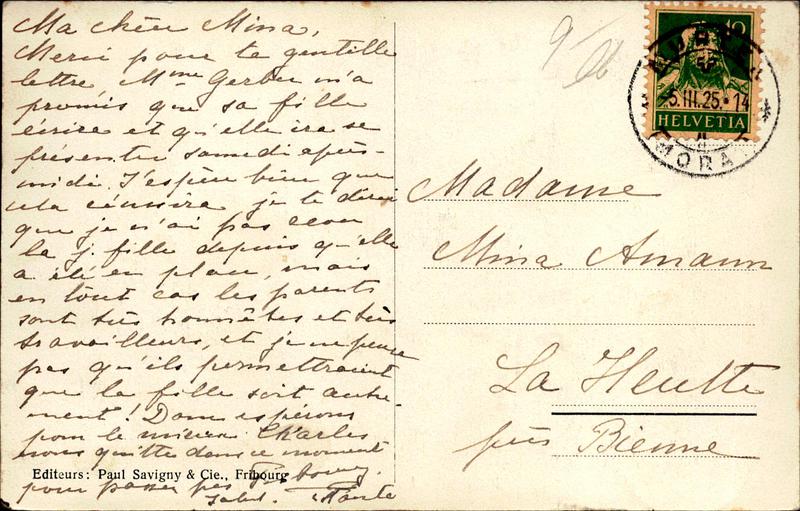 Ma chère Mina,
Merci pour ta gentille
lettre Mme Gerber m'a
promis que sa fille
écrira et qu'elle ira se
présenter samedi après-
midi. J'espère bien que
cela réussira je te dirai
que je n'ai pas revu
la j. fille depuis qu'elle
a été en place, mais
en tout cas les parents
sont très honnêtes et très
travailleurs, et je ne pense
pas qu'ils permettraient
que la fille soit autre-
ment! Donc espérons
pour le mieux. Charles
nous quitte dans ce moment
pour passer par Fribourg.
Salut. Tante
Editeurs: Paul Savigny & Cie., Fribourg
10
HELVETIA
MURTEN
5.III.25.14
MORAT
Madame
Mina Amann
La Heutte
près Bienne